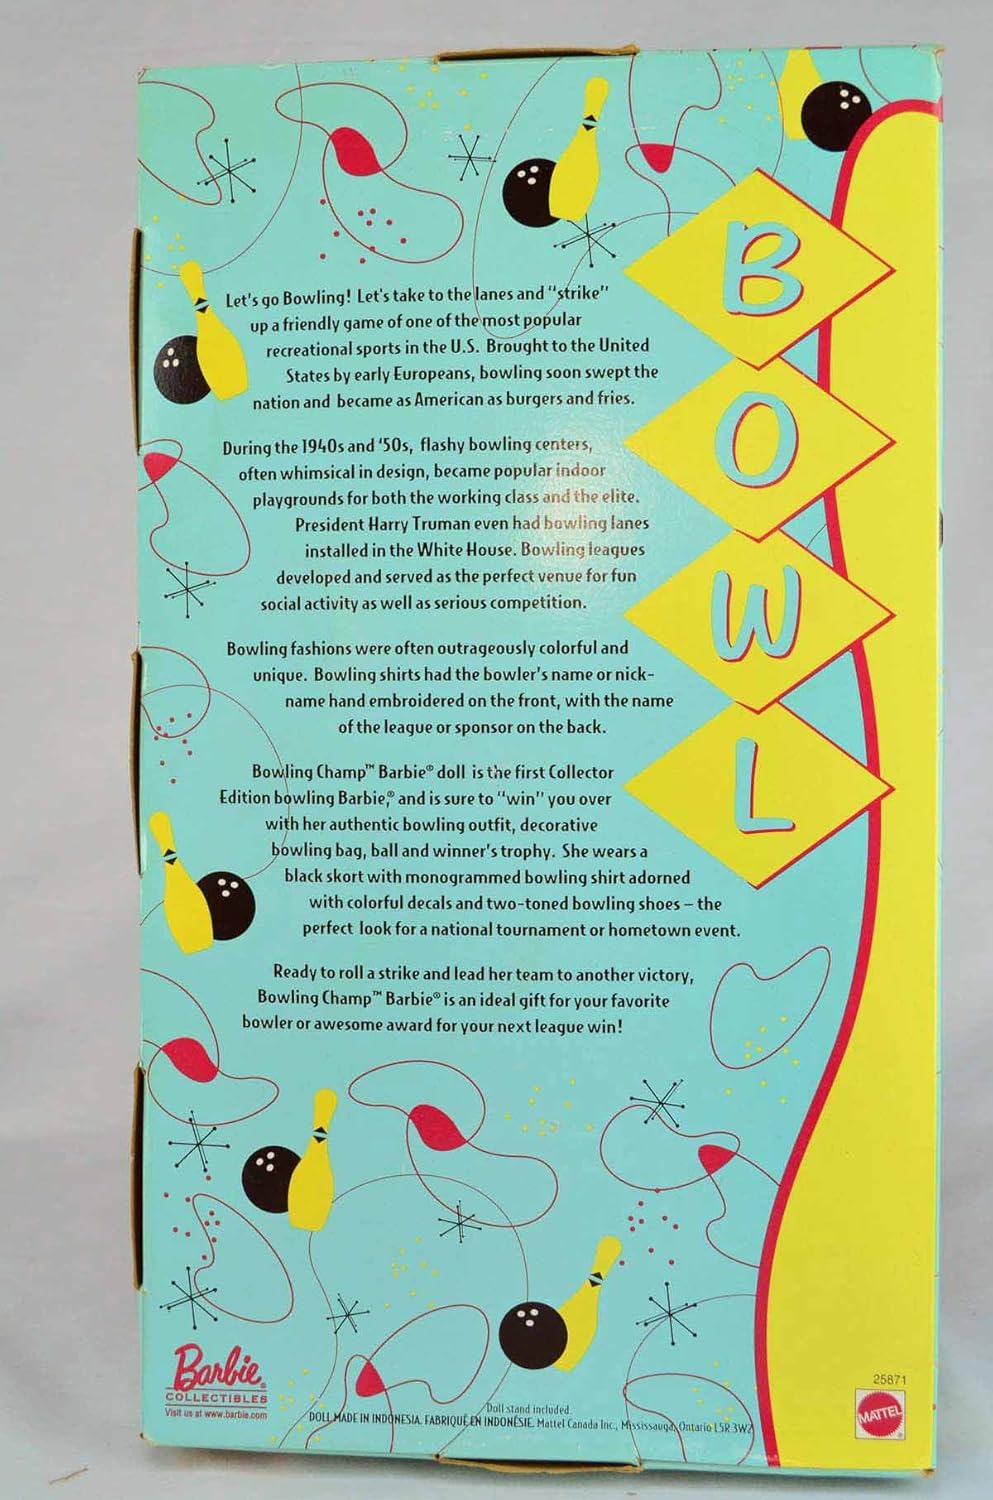 B
O
W
L
Let's go Bowling! Let's take to the lanes and "strike"
up a friendly game of one of the most popular
recreational sports in the U.S. Brought to the United
States by early Europeans, bowling soon swept the
nation and became as American as burgers and fries.
During the 1940s and '50s, flashy bowling centers,
often whimsical in design, became popular indoor
playgrounds for both the working class and the elite.
President Harry Truman even had bowling lanes
installed in the White House. Bowling leagues
developed and served as the perfect venue for fun
social activity as well as serious competition.
Bowling fashions were often outrageously colorful and
unique. Bowling shirts had the bowler's name or nick-
name hand embroidered on the front, with the name
of the league or sponsor on the back.
Bowling Champ™ Barbie® doll is the first Collector
Edition bowling Barbie,® and is sure to "win" you over
with her authentic bowling outfit, decorative
bowling bag, ball and winner's trophy. She wears a
black skort with monogrammed bowling shirt adorned
with colorful decals and two-toned bowling shoes – the
perfect look for a national tournament or hometown event.
Ready to roll a strike and lead her team to another victory,
Bowling Champ™ Barbie® is an ideal gift for your favorite
bowler or awesome award for your next league win!
Barbie®
COLLECTIBLES
Visit us at www.barbie.com
Doll stand included.
DOLL MADE IN INDONESIA. FABRIQUÉ EN INDONÉSIE. Mattel Canada Inc., Mississauga, Ontario L5R 3W2
25871
MATTEL®